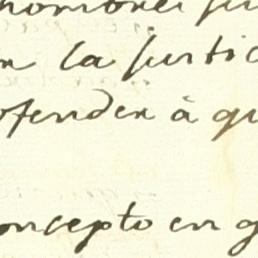 hombres
la justic
ofender à qu
concepto en g